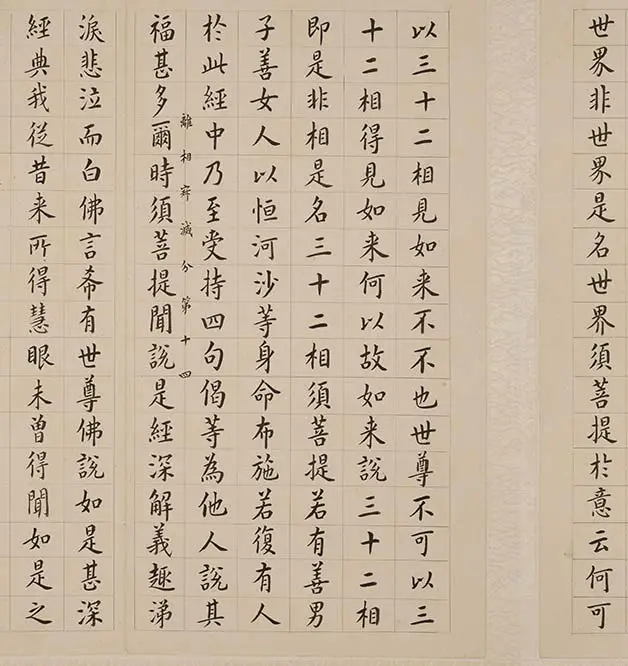 世界非世界是名世界須菩提於意云何可
以三十二相見如来不不也世尊不可以三
十二相得見如来何以故如来說三十二相
即是非相是名三十二相須菩提若有善男
子善女人以恒河沙等身命布施若復有人
於此經中乃至受持四句偈等為他人說其
離相寂滅分第十四
福甚多爾時須菩提聞說是經深解義趣涕
淚悲泣而白佛言希有世尊佛說如是甚深
經典我從昔来所得慧眼未曾得聞如是之